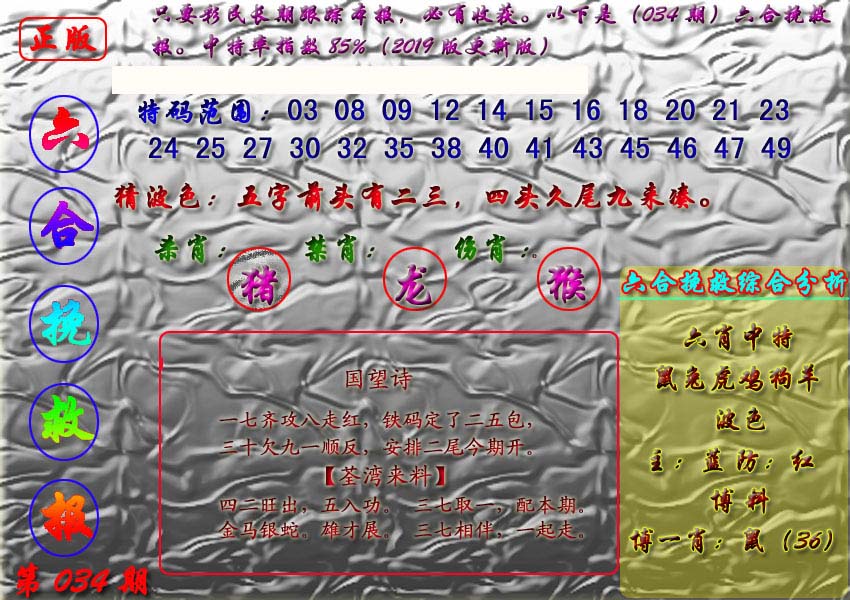 正版
只要彩民长期跟踪本报，必有收获。以下是（034期）六合挽救
报。中特率指数85%（2019版更新版）
六合挽救报
第034期
特码范围：03 08 09 12 14 15 16 18 20 21 23
24 25 27 30 32 35 38 40 41 43 45 46 47 49
猜波色：五字前头有二三，四头久尾九来凑。
杀肖：猪 禁肖：龙 伤肖：猴
国望诗
一七齐攻八走红，铁码定了二五包，
三十欠九一顺反，安排二尾今期开。
【荃湾来料】
四二旺出，五入功。 三七取一，配本期。
金马银蛇。雄才展。 三七相伴，一起走。
六合挽救综合分析
六肖中特
鼠兔虎鸡狗羊
波色
主：蓝防：红
博料
博一肖：鼠（36）